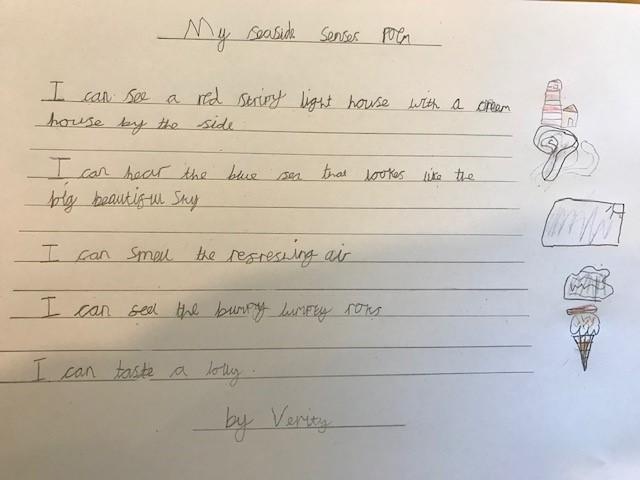 My seaside senses Poem
I can see a red stripy light house with a cream
house by the side
I can hear the blue sea that lookes like the
big beautiful sky
I can smell the refreshing air
I can feel the bumpy lumpey roks
I can taste a lolly.
by Verity